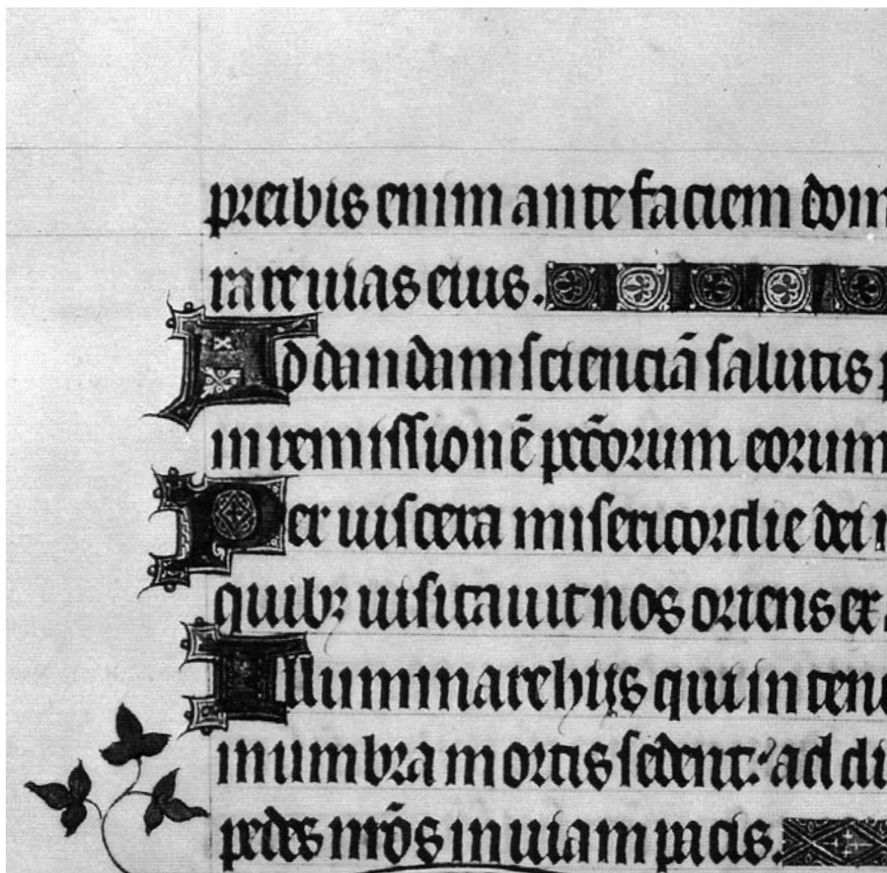 preibis enim ante faciem dom
rare uias eius.
Ad dandam scienciā salutis p
in remissionē pccōrum eorum
Per uiscera misericordie dei n
quibꝫ uisitauit nos oriens ex
Illuminare hijs qui in tene
in umbra mortis sedent: ad di
pedes nrōs in uiam pacis.